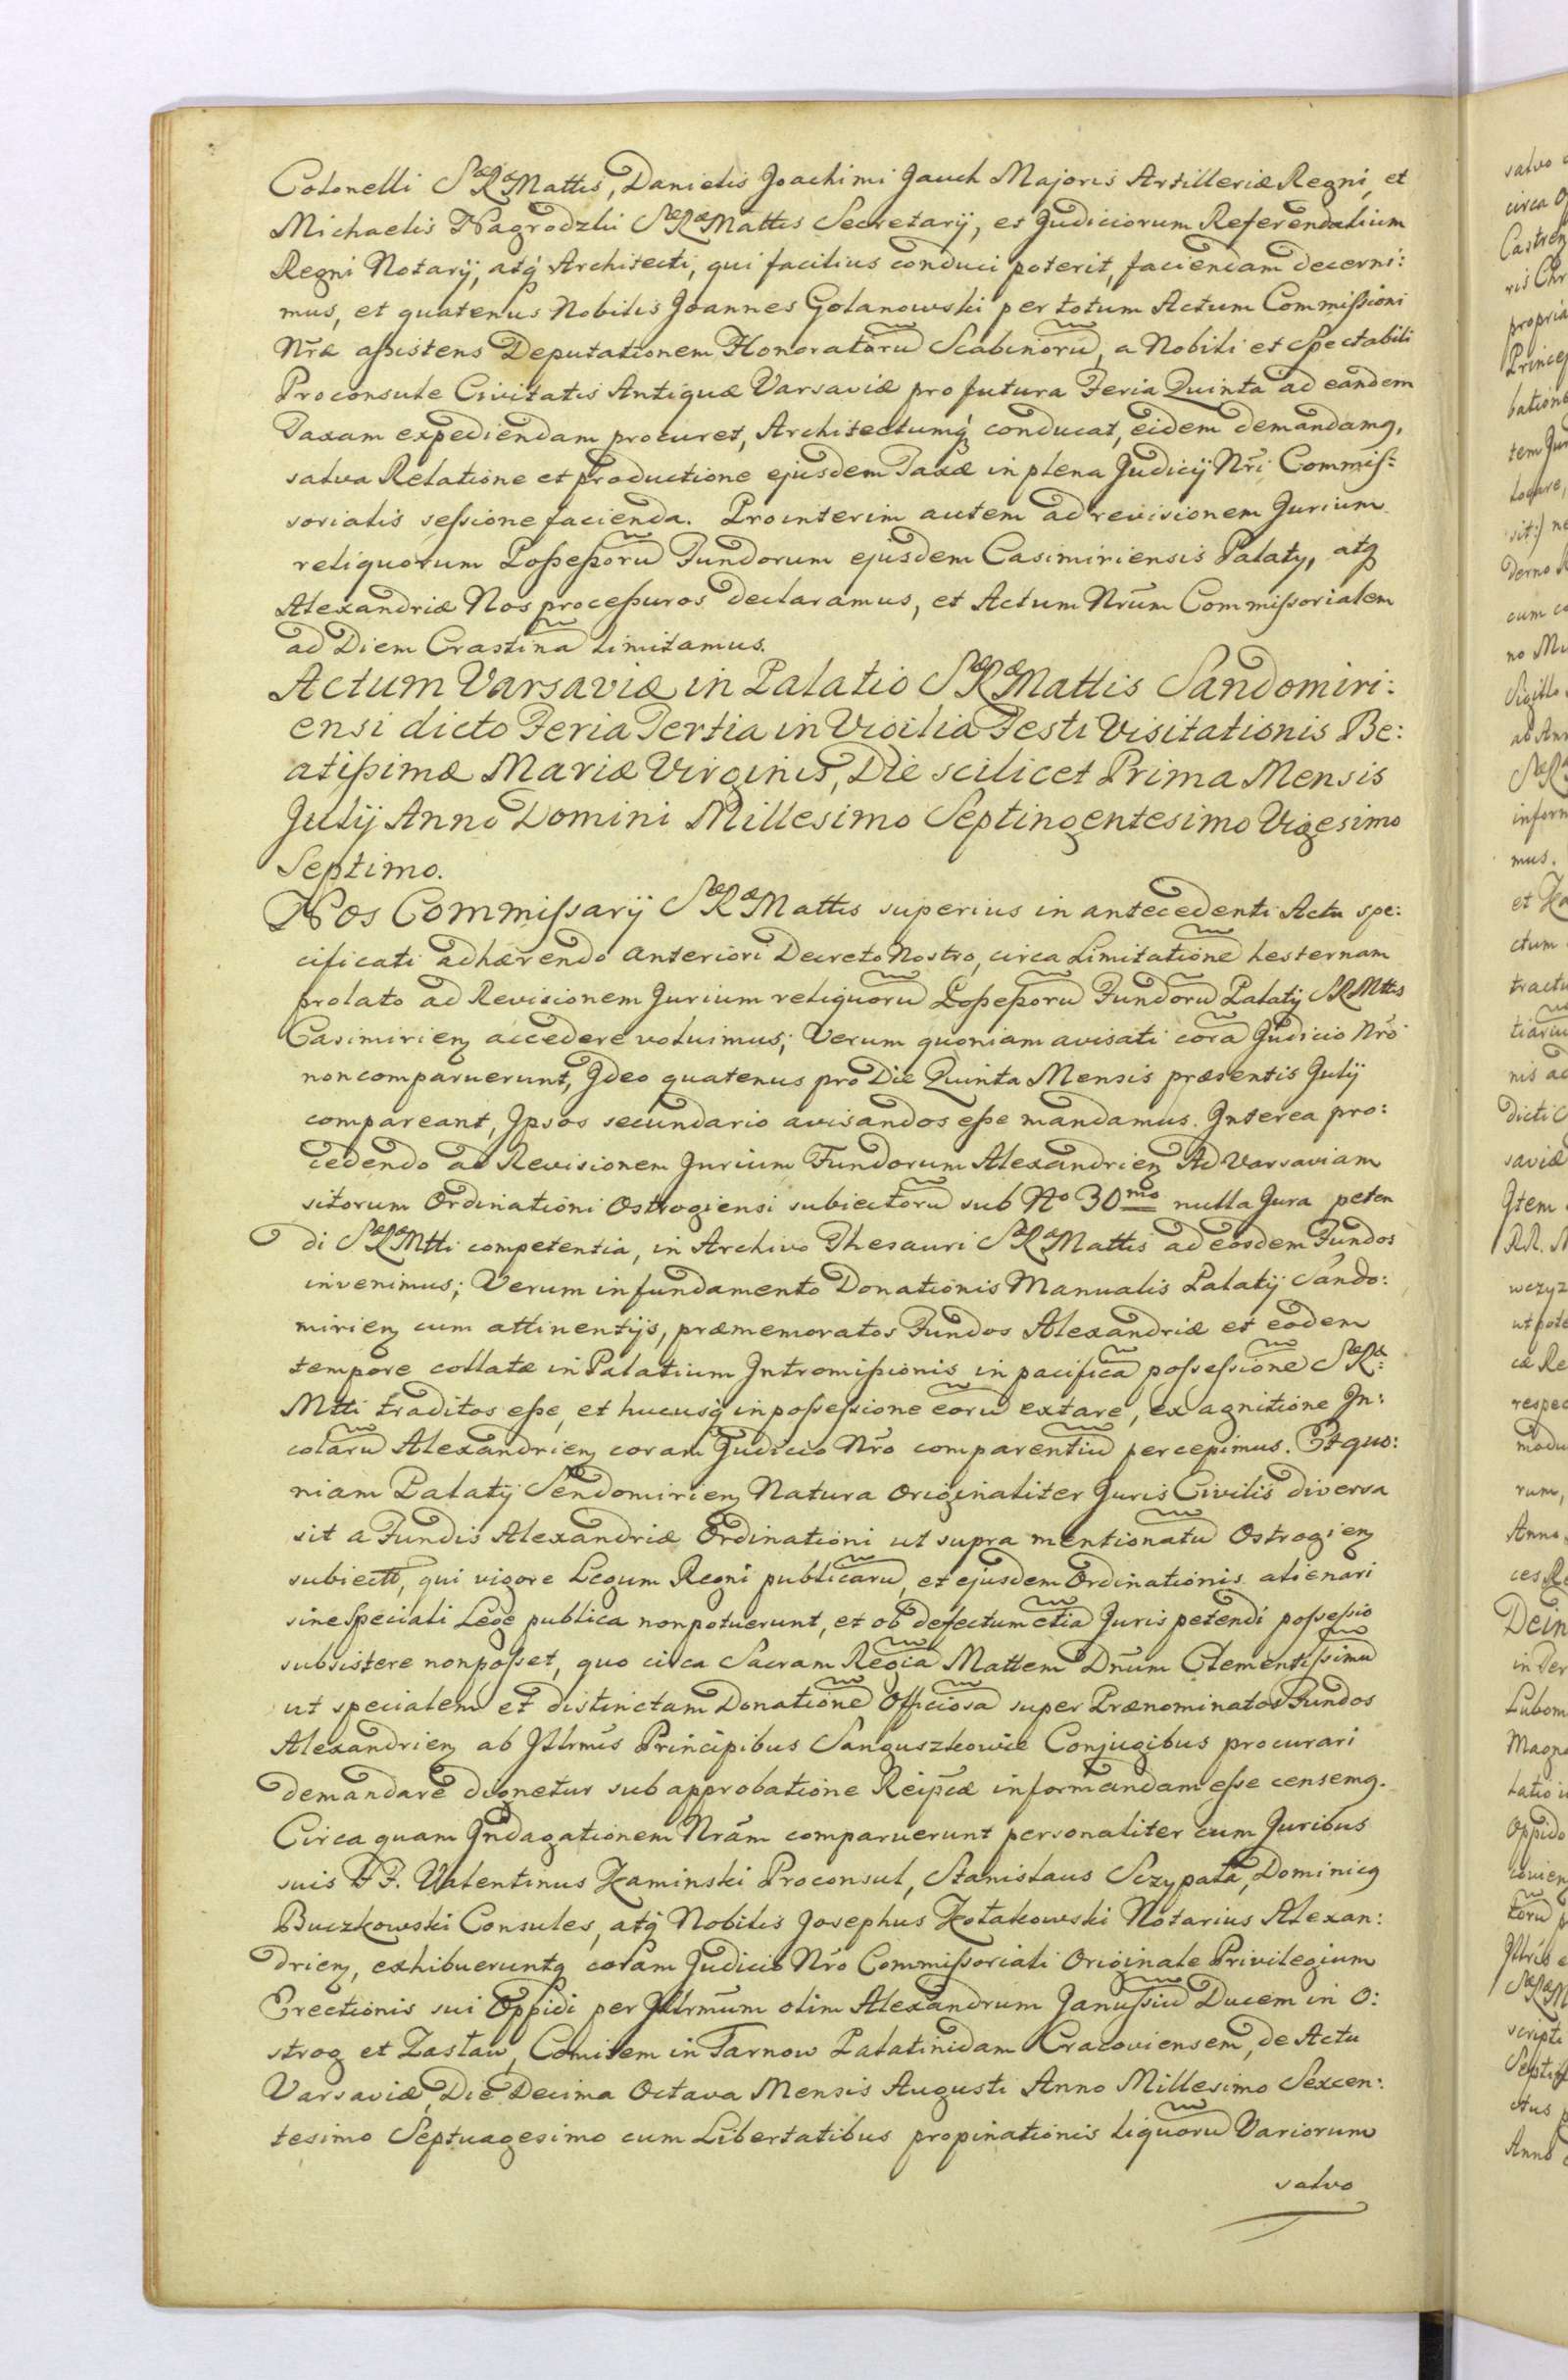 Colonelli SæRæMattis, Danielis Joachimi Jauch Majoris Artilleriæ Regni, et
Michaelis Nagrodzki SæRæMattis Secretarij, et Judiciorum Referendalium
Regni Notarij, atq́ Architecti, qui facilius conduci poterit, faciendam decerni:
mus, et quatenus Nobilis Joannes Golanowski per totum Actum Commißioni
Nr̃æ aßistens Deputationem Honoratorũ Scabinorũ, a Nobili et Spectabili
Proconsule Civitatis Antiquæ Varsaviæ pro futura Feria Quinta ad eandem
Taxam expediendam procuret, Architectumq́ conducat, eidem demandamq,
salva Relatione et productione ejusdem Taxæ in plena Judicij Nr̃i Commis:
sorialis seßione facienda. Prointerim autem ad revisionem Jurium
reliquorum Poßeßorũ Fundorum ejusdem Casimiriensis Palatij, atq
Alexandriæ Nos proceßuros declaramus, et Actum Nrũm Commißorialem
ad Diem Crastinã limitamus.
Actum Varsaviæ in Palatio SæRæMattis Sandomiri:
ensi dicto Feria Tertia in Vigilia Festi Visitationis Be:
atißimæ Mariæ Virginis, Die scilicet Prima Mensis
Julij Anno Domini Millesimo Septingentesimo Vigesimo
Septimo.
Nos Commißarij SæRæMattis superius in antecedenti Actu spe:
cificati adhærendo anteriori Decreto Nostro, circa Limitationẽ hesternam
prolato ad Revisionem Jurium reliquorũ Poßeßorũ Fundorũ Palatij SRMttis
Casimirien̄ accedere voluimus; Verum quoniam avisati corã Judicio Nr̃o
non comparuerunt, Ideo quatenus pro Die Quinta Mensis præsentis Julij
compareant, Ipsos secundario avisandos eße mandamus. Interea pro:
cedendo ad Revisionem Jurium Fundorum Alexandrien̄ Ad Varsaviam
sitorum Ordinationi Ostrogiensi subiectorũ sub No 30mo nulla Jura peten
di SæRæMtti competentia, in Archivo Thesauri SæRæMattis ad eosdem Fundos
invenimus; Verum in fundamento Donationis Manualis Palatij Sando:
mirien̄ cum attinentijs, præmemoratos Fundos Alexandriæ et eodem
tempore collatæ in Palatium Intromißionis in pacificã poßeßionẽ SæRæ:
Mtti traditos eße, et hucusq́ in poßeßione eorũ extare, ex agnitione In:
colarũ Alexandrien̄ coram Judicio Nr̃o comparentiũ percepimus. Et quo:
niam Palatij Sendomirien̄ Natura originaliter Juris Civilis diversa
sit a Fundis Alexandriæ Ordinationi ut supra mentionatũ Ostrogien̄
subiecti, qui vigore Legum Regni publicarũ, et ejusdem Ordinationis alienari
sine speciali Lege publica non potuerunt, et ob defectum etiã Juris petendi poßeßio
subsistere non poßet, quo circa Sacram Regiã Mattem Dnũm Clementißimũ
ut specialem et distinctam Donationẽ Officiosã super Prænominatos Fundos
Alexandrien̄ ab Illrm̃is Principibus Sanguszkowie Conjugibus procurari
demandare dignetur sub approbatione Reip̃cæ informandam eße censemq.
Circa quam Indagationem Nrãm comparuerunt personaliter cum Juribus
suis FF. Valentinus Kaminski Proconsul, Stanislaus Sczypała, Dominicq
Buczkowski Consules, atq́ Nobilis Josephus Kołakowski Notarius Alexan:
drien̄, exhibueruntq coram Judicio Nr̃o Commißoriali Originale Privilegium
Erectionis sui Oppidi per Illrmũm olim Alexandrum Janußiũ Ducem in O:
strog et Zasław, Comitem in Tarnow Palatinidam Cracoviensem, de Actu
Varsaviæ Die Decima Octava Mensis Augusti Anno Millesimo Sexcen:
tesimo Septuagesimo cum Libertatibus propinationis liquorũ Variorum
salvo